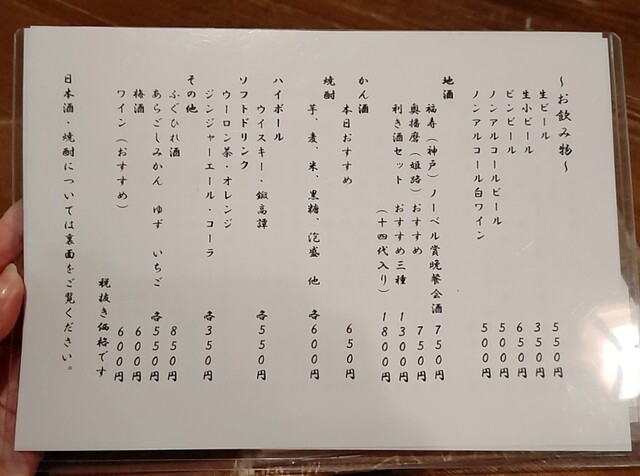 ～お飲み物～
生ビール 550円
生小ビール 350円
ビンビール 650円
ノンアルコールビール 500円
ノンアルコール白ワイン 500円
地酒
福寿（神戸）ノーベル賞晩餐会酒 750円
奥播磨（姫路）おすすめ 750円
利き酒セット おすすめ三種 1300円
（十四代入り） 1800円
かん酒
本日おすすめ 650円
焼酎
芋、麦、米、黒糖、泡盛 他 各600円
ハイボール
ウイスキー・鍛高譚 各550円
ソフトドリンク
ウーロン茶・オレンジ
ジンジャーエール・コーラ 各350円
その他
ふぐひれ酒 850円
あらごしみかん ゆず いちご 各550円
梅酒 600円
ワイン（おすすめ） 600円
税抜き価格です
日本酒・焼酎については裏面をご覧ください。